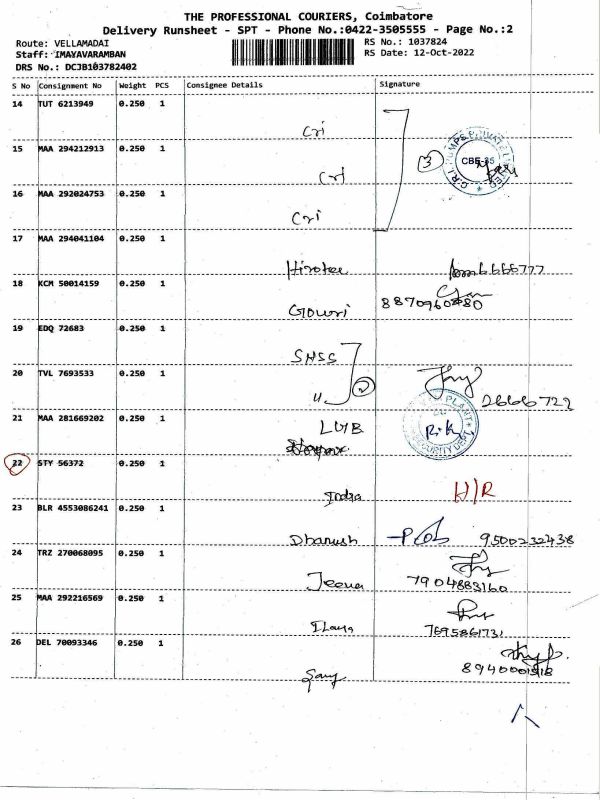 THE PROFESSIONAL COURIERS, Coimbatore
Delivery Runsheet - SPT - Phone No.:0422-3505555 - Page No.:2
Route: VELLAMADAI RS No.: 1037824
Staff: IMAYAVARAMBAN RS Date: 12-Oct-2022
DRS No.: DCJB103782402
S No Consignment No Weight PCS Consignee Details Signature
14 TUT 6213949 0.250 1
Cri
15 MAA 294212913 0.250 1
Cri 3 CBE-35
16 MAA 292024753 0.250 1
Cri
17 MAA 294041104 0.250 1
Hirotec 6666777
18 KCM 50014159 0.250 1
Gowri 8870960480
19 EDQ 72683 0.250 1
SNSS
20 TVL 7693533 0.250 1
" 2 26666722
21 MAA 281669202 0.250 1
PLANT
SECURITY DEPT
22 STY 56372 0.250 1
Indra H/R
23 BLR 4553086241 0.250 1
Dhanush 9500232438
24 TRZ 270068095 0.250 1
Jeena 7904883160
25 MAA 292216569 0.250 1
Ilaya 7695861731
26 DEL 70093346 0.250 1